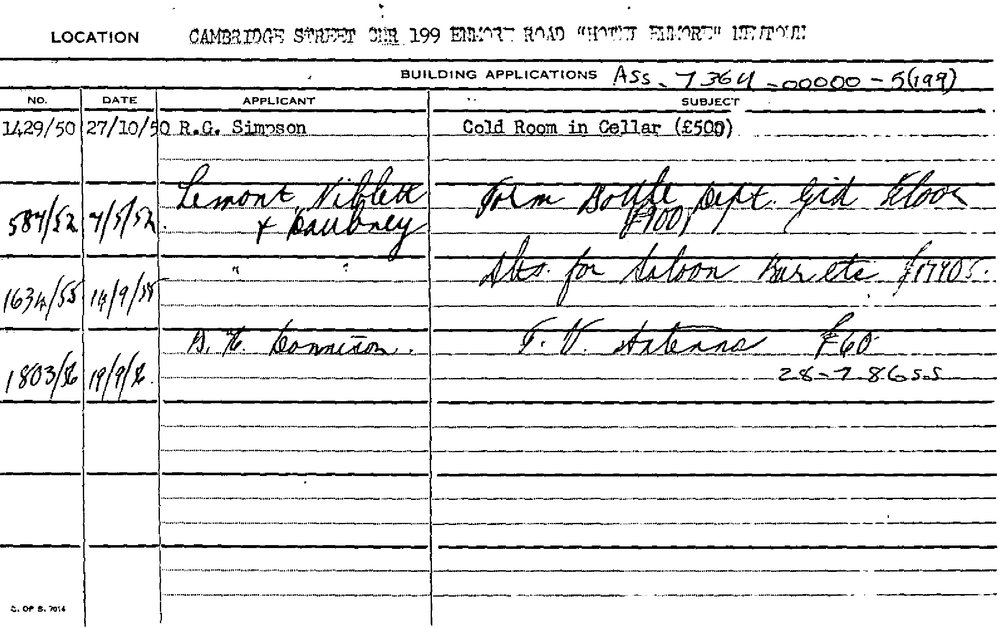 LOCATION CAMBRIDGE STREET CNR 199 ENMORE ROAD "HOTEL ENMORE" NEWTOWN
BUILDING APPLICATIONS Ass - 7364 - 00000 - 5(199)
NO. DATE APPLICANT SUBJECT
1429/50 27/10/50 R.G. Simpson Cold Room in Cellar (£500)
Lemont, Niblett Form Bottle Dept. Grd Floor
587/52 7/5/52 & Daubney £900
" " for Saloon Bar etc £17905.
1634/55 14/9/55
T.V. Antenna £60
1803/56 19/9/56. 28-7-86 S.S
C. OF S. 7014